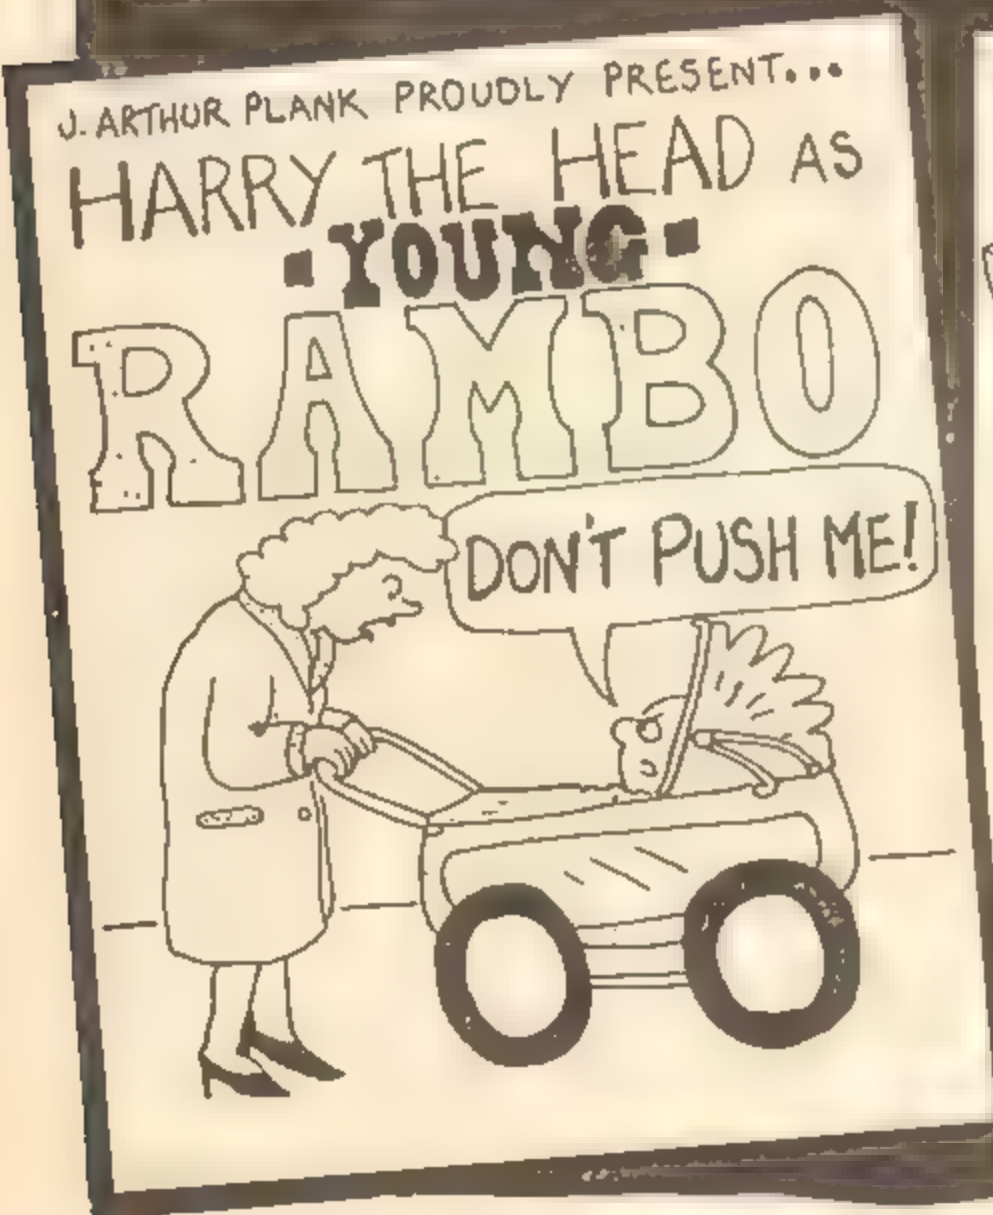 J. ARTHUR PLANK PROUDLY PRESENT...
HARRY THE HEAD AS
▪YOUNG▪
RAMBO
DON'T PUSH ME!